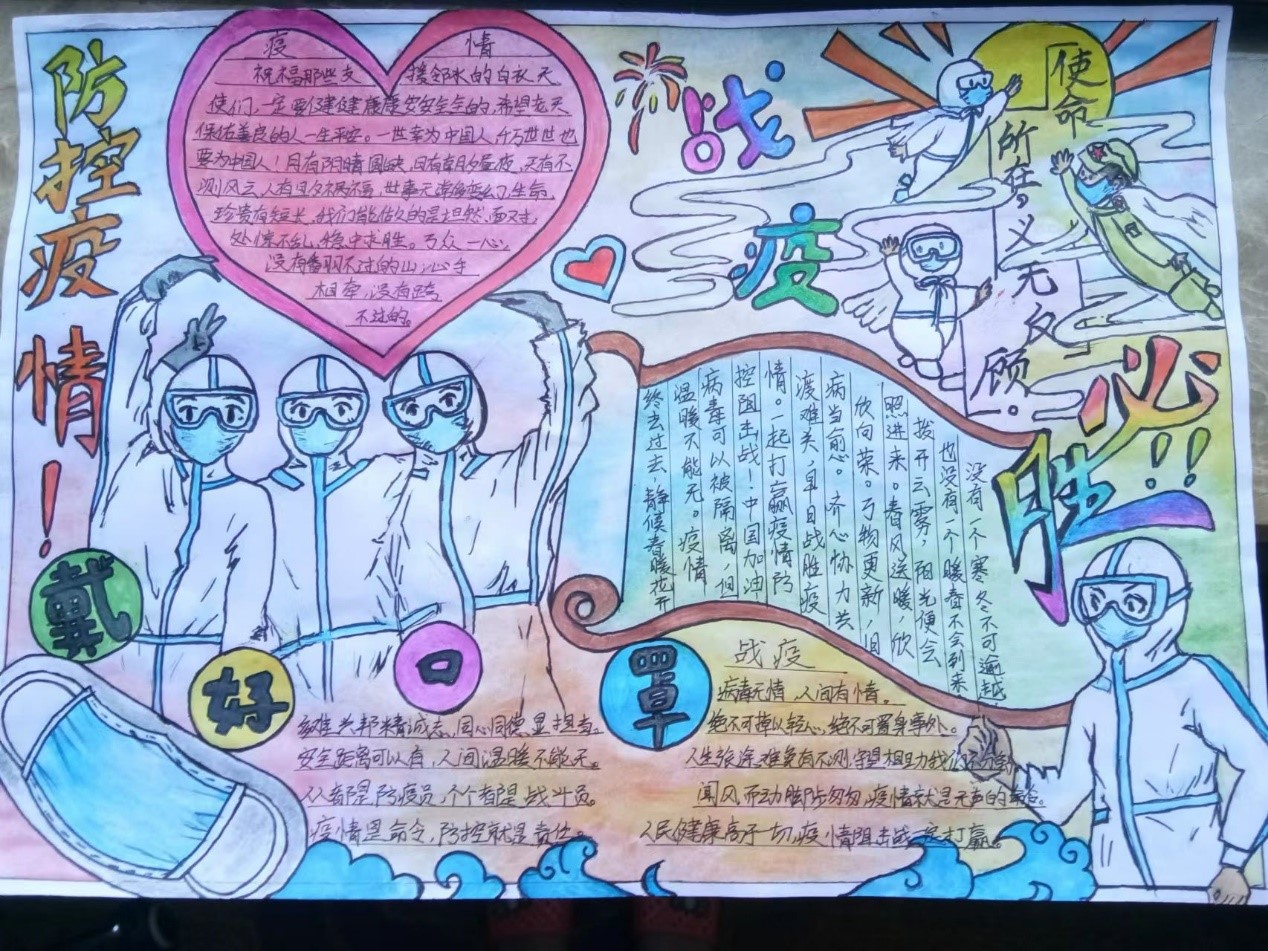 防控疫情！
疫情
祝福那些支援邻水的白衣天
使们，一定要健健康康安安全全的，希望老天
保佑善良的人一生平安。一世幸为中国人，千万世世也
要为中国人！月有阴晴圆缺，日有朝夕昼夜，天有不
测风云，人有旦夕祸福，世事无常变幻，生命
珍贵有短长，我们能做的是坦然面对
处惊不乱，稳中求胜。万众一心，
没有翻不过的山，心手
相牵，没有跨
不过的。
战疫
必胜!!
使命
所在，义无反顾。
没有一个寒冬不可逾越，
也没有一个暖春不会到来
拨开云雾，阳光便会
照进来。春风送暖，欣
欣向荣。万物更新，旧
病当愈。齐心协力共
渡难关，早日战胜疫
情。一起打赢疫情防
控阻击战！中国加油
病毒可以被隔离，但
温暖不能无。疫情
终去过去，静候春暖花开
戴好口罩
多难兴邦精诚志，同心同德显担当。
安全距离可以有，人间温暖不能无。
人人都是防疫员，个个都是战斗员。
疫情是命令，防控就是责任。
战疫
病毒无情，人间有情。
绝不可掉以轻心，绝不可置身事外。
人生旅途难免有不测，守望相助
闻风而动脚步匆匆，疫情就是无声的命令。
人民健康高于一切，疫情阻击战一定打赢。